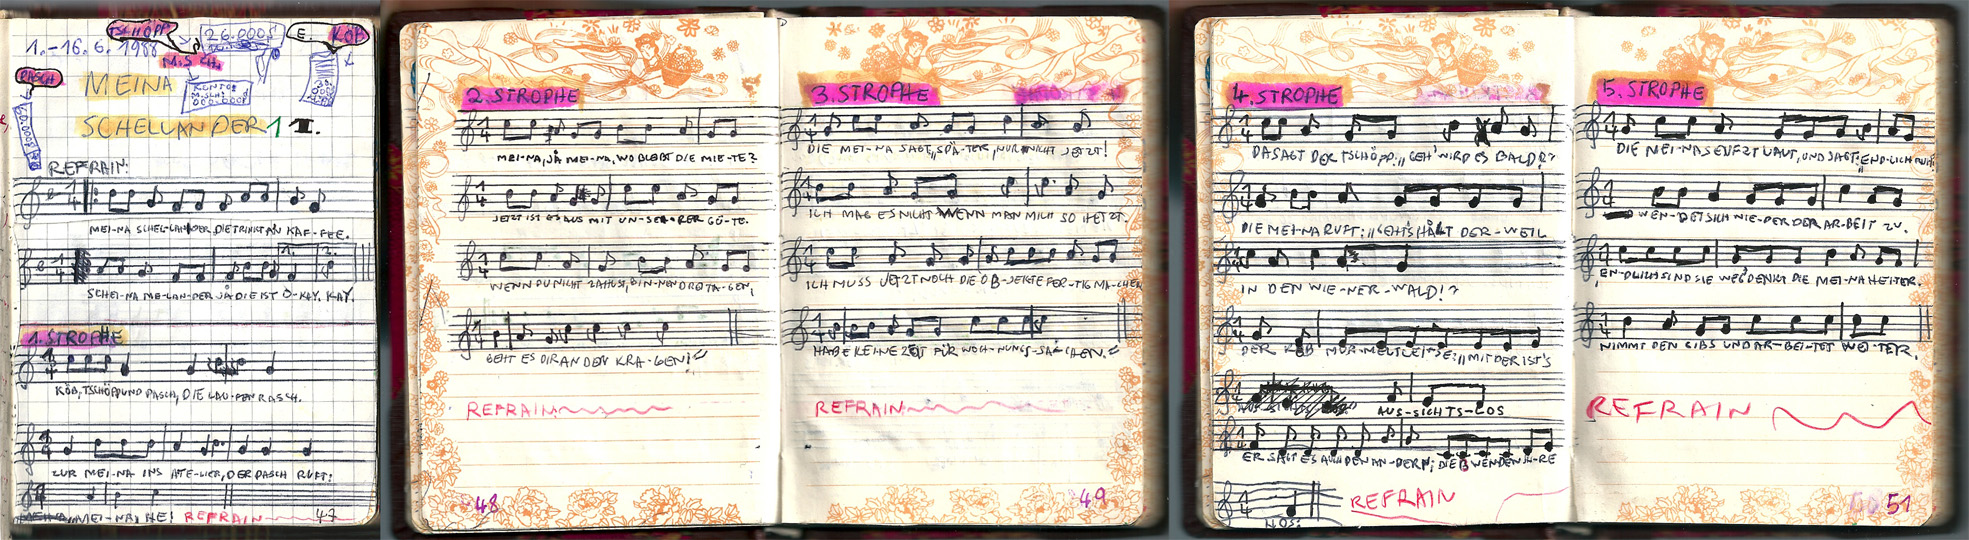 TSCHÖPP
26.000 S
E. KÖB
1.-16.6.1988
M. SCH.
RASCH
MEINA
KONTO:
M. SCH:
000.000
SCHELLANDER 1 I.
REFRAIN:
MEI-NA SCHEL-LAN-DER, DIE TRINKT AN KAF-FEE.
1. 2.
SCHEI-NA ME-LAN-DER JÅ DIE IST O-KAY. KAY.
1. STROPHE
KÖB, TSCHÖPP UND PASCH, DIE LAU-FEN RASCH.
ZUR MEI-NA INS ATE-LIER, DER PASCH RUFT:
"MEI-NA! HE! REFRAIN
47
2. STROPHE
MEI-NA, JÅ MEI-NA, WO BLEIBT DIE MIE-TE?
JETZT IST ES AUS MIT UN-SER-RER GÜ-TE.
WENN DU NICHT ZAHLST, BIN-NEN DREI TA-GEN,
GEHT ES DIR AN DEN KRA-GEN!"
REFRAIN
48
3. STROPHE
DIE MEI-NA SAGT, "SPÄ-TER, NUR NICHT JETZT!
ICH MAG ES NICHT WENN MAN MICH SO HETZT.
ICH MUSS JETZT NOCH DIE OB-JEKTE FER-TIG MA-CHEN
HABE KEINE ZEIT FÜR WOH-NUNGS-SA-CHEN."
REFRAIN
49
4. STROPHE
DA SAGT DER TSCHÖPP: "GEH' WIRD ES BALD!?
DIE MEI-NA RUFT: "GEHT'S HÅLT DER-WEIL
IN DEN WIE-NER-WALD!?
DER KÖB MUR-MELT LEI-SE: "MIT DER IST'S
AUS-SICHTS-LOS
ER SAGT ES AUCH DEN AN-DERN; DIE WENDEN IH-RE
NOS:
REFRAIN
5. STROPHE
DIE MEI-NA SEUFZT LAUT, UND SAGT: "END-LICH RUH.
WEN-DET SICH WIE-DER DER AR-BEIT ZU.
EN-DLICH SIND SIE WEG DENKT DIE MEI-NA HEITER.
NIMMT DEN GIBS UND AR-BEI-TET WEI-TER.
REFRAIN
51